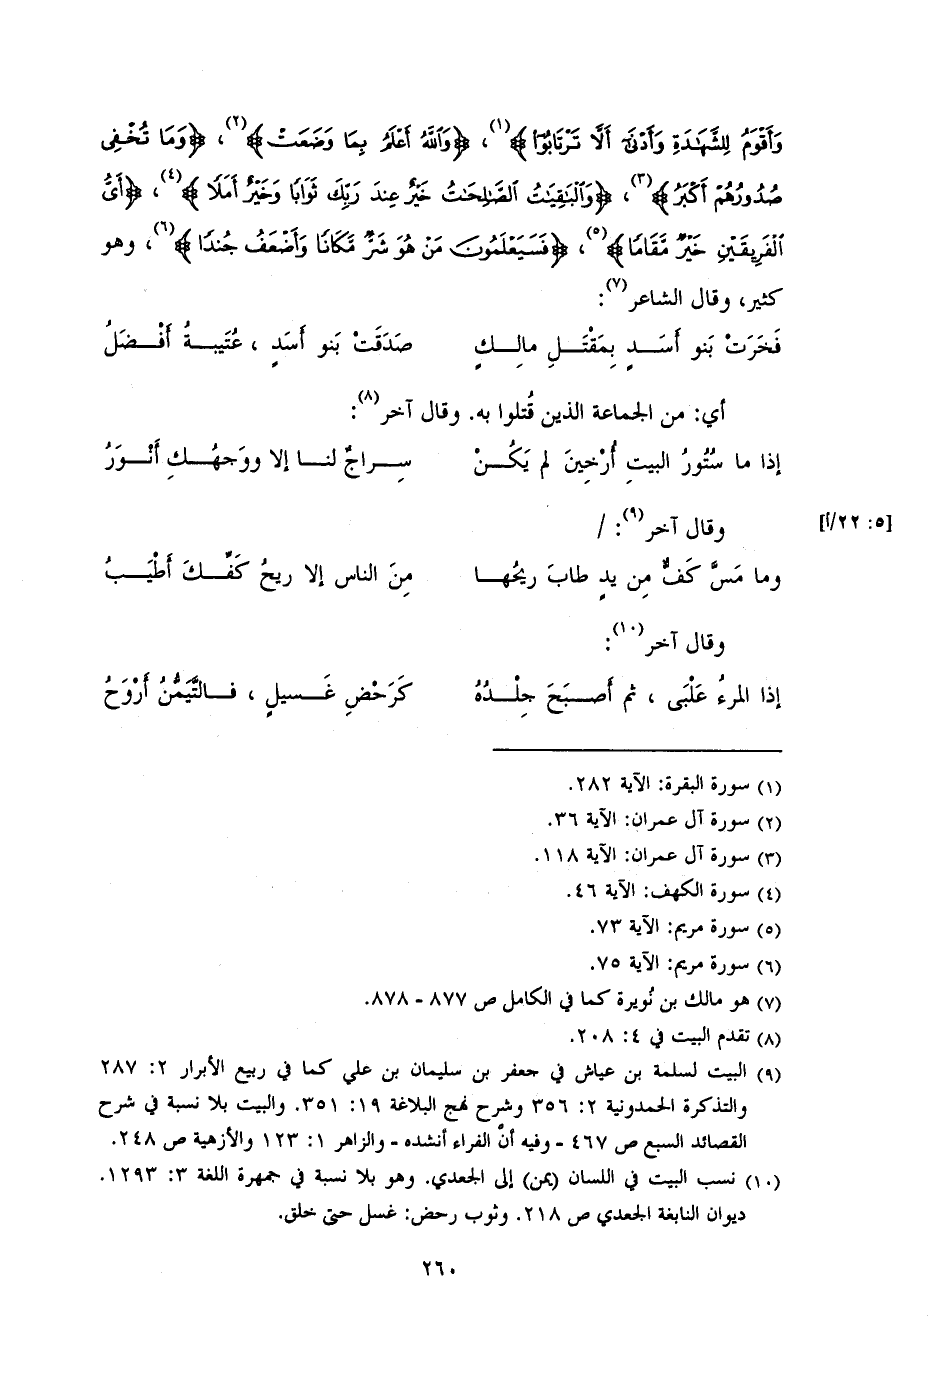 وَأَقْوَمُ لِلشَّهَٰدَةِ وَأَدْنَىٰٓ أَلَّا تَرْتَابُوٓا۟﴾(١)، ﴿وَٱللَّهُ أَعْلَمُ بِمَا وَضَعَتْ﴾(٢)، ﴿وَمَا تُخْفِى
صُدُورُهُمْ أَكْبَرُ﴾(٣)، ﴿وَٱلْبَٰقِيَٰتُ ٱلصَّٰلِحَٰتُ خَيْرٌ عِندَ رَبِّكَ ثَوَابًا وَخَيْرٌ أَمَلًا﴾(٤)، ﴿أَىُّ
ٱلْفَرِيقَيْنِ خَيْرٌ مَّقَامًا﴾(٥)، ﴿فَسَيَعْلَمُونَ مَنْ هُوَ شَرٌّ مَّكَانًا وَأَضْعَفُ جُندًا﴾(٦)، وهو
كثير، وقال الشاعر(٧):
فَخَرَتْ بَنو أَسَـــدٍ بِمَقْتَـــلِ مالِــكٍ صَدَقَتْ بَنو أَسَدٍ ، عُتَيبــةُ أَفْــضَلُ
أي: من الجماعة الذين قُتلوا به. وقال آخر(٨):
إذا ما سُتُورُ البيتِ أُرْخِينَ لم يَكُــنْ سِــراجٌ لنــا إلا ووَجهُــكِ أَنْــوَرُ
[٥: ٢٢/أ] وقال آخر(٩): /
وما مَسَّ كَفٌّ مِن يدٍ طابَ ريحُهــا مِنَ الناس إلا ريحُ كَفِّــكَ أَطْيَــبُ
وقال آخر(١٠):
إذا المرءُ عَلْبَى ، ثم أَصــبَحَ جِلْــدُهُ كَرَحْضِ غَــسيلٍ ، فــالتَّيَمُّنُ أَرْوَحُ
(١) سورة البقرة: الآية ٢٨٢.
(٢) سورة آل عمران: الآية ٣٦.
(٣) سورة آل عمران: الآية ١١٨.
(٤) سورة الكهف: الآية ٤٦.
(٥) سورة مريم: الآية ٧٣.
(٦) سورة مريم: الآية ٧٥.
(٧) هو مالك بن نُويرة كما في الكامل ص ٨٧٧ - ٨٧٨.
(٨) تقدم البيت في ٤: ٢٠٨.
(٩) البيت لسلمة بن عياش في جعفر بن سليمان بن علي كما في ربيع الأبرار ٢: ٢٨٧
والتذكرة الحمدونية ٢: ٣٥٦ وشرح نهج البلاغة ١٩: ٣٥١. والبيت بلا نسبة في شرح
القصائد السبع ص ٤٦٧ - وفيه أنَّ الفراء أنشده - والزاهر ١: ١٢٣ والأزهية ص ٢٤٨.
(١٠) نسب البيت في اللسان (يمن) إلى الجعدي. وهو بلا نسبة في جمهرة اللغة ٣: ١٢٩٣.
ديوان النابغة الجعدي ص ٢١٨. وثوب رحض: غسل حتى خلق.
٢٦٠